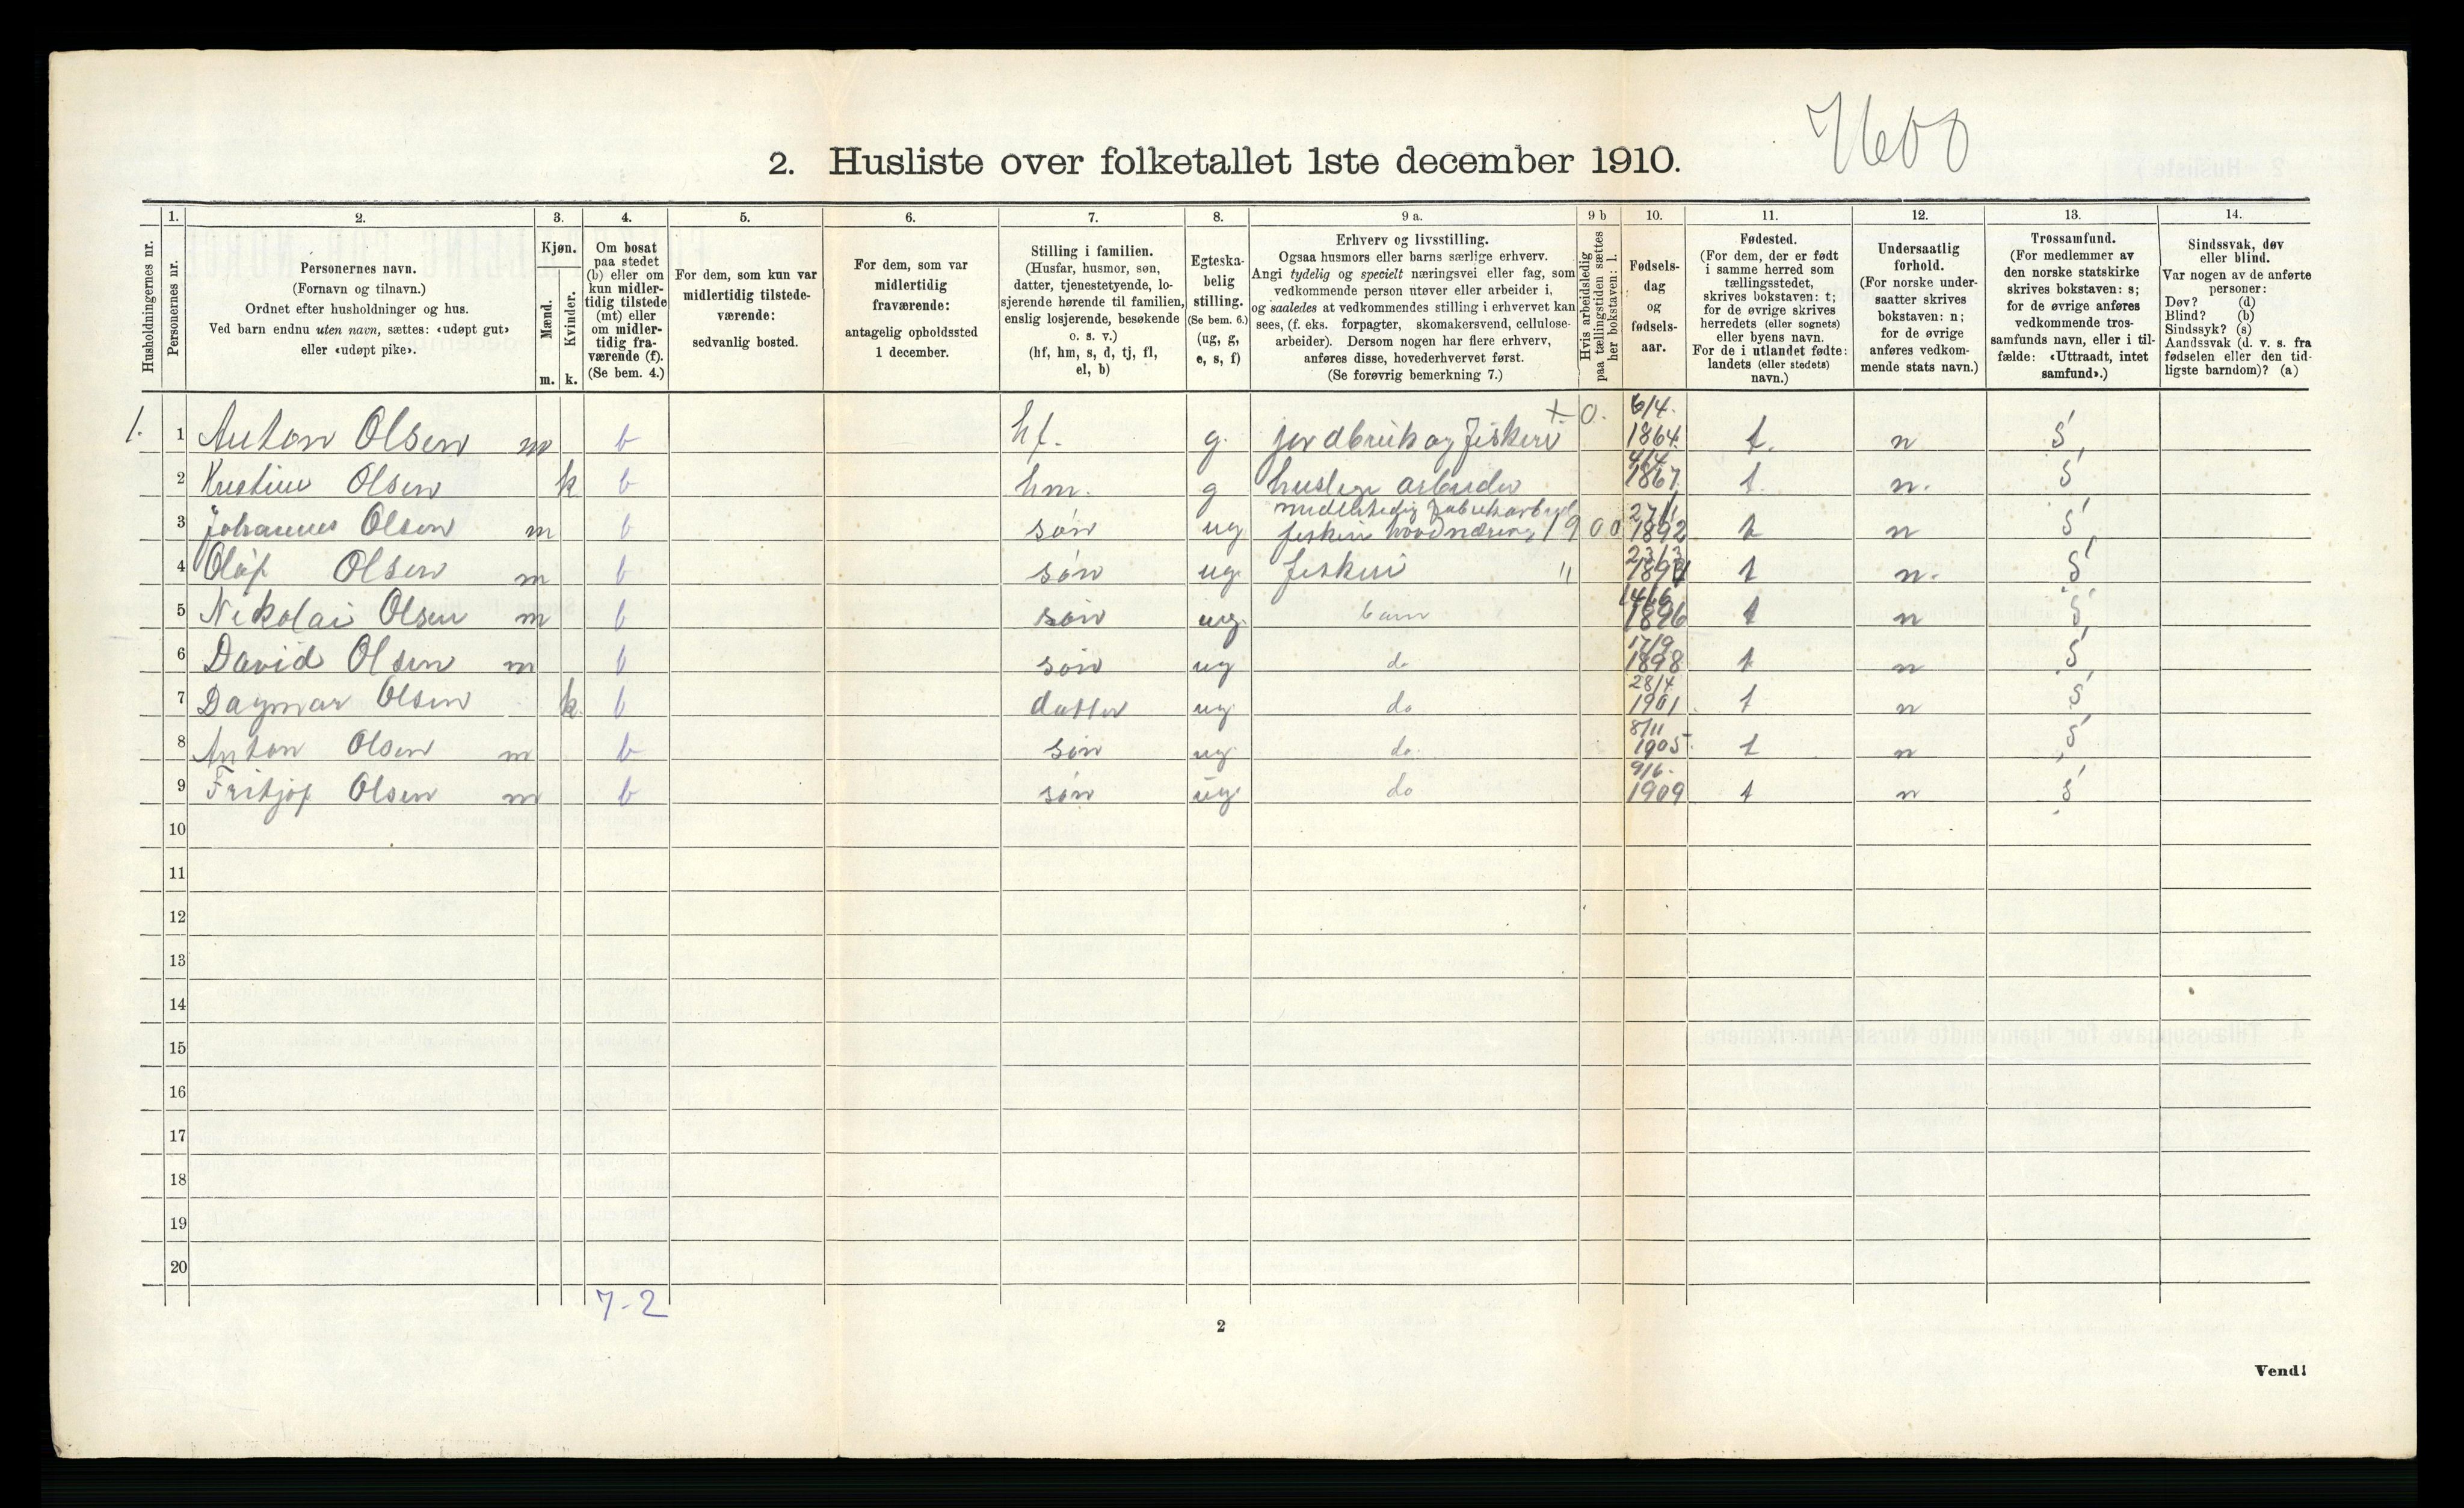 7600
2. Husliste over folketallet 1ste december 1910.
1. 2. 3. 4. 5. 6. 7. 8. 9 a. 9 b 10. 11. 12. 13. 14.
Husholdningernes nr.
Personernes nr.
Personernes navn.
(Fornavn og tilnavn.)
Ordnet efter husholdninger og hus.
Ved barn endnu uten navn, sættes: «udøpt gut»
eller «udøpt pike».
Kjøn.
Mænd.
Kvinder.
m. k.
Om bosat
paa stedet
(b) eller om
kun midler-
tidig tilstede
(mt) eller
om midler-
tidig fra-
værende (f).
(Se bem. 4.)
For dem, som kun var
midlertidig tilstede-
værende:
sedvanlig bosted.
For dem, som var
midlertidig
fraværende:
antagelig opholdssted
1 december.
Stilling i familien.
(Husfar, husmor, søn,
datter, tjenestetyende, lo-
sjerende hørende til familien,
enslig losjerende, besøkende
o. s. v.)
(hf, hm, s, d, tj, fl,
el, b)
Egteska-
belig
stilling.
(Se bem. 6.)
(ug, g,
e, s, f)
Erhverv og livsstilling.
Ogsaa husmors eller barns særlige erhverv.
Angi tydelig og specielt næringsvei eller fag, som
vedkommende person utøver eller arbeider i,
og saaledes at vedkommendes stilling i erhvervet kan
sees, (f. eks. forpagter, skomakersvend, cellulose-
arbeider). Dersom nogen har flere erhverv,
anføres disse, hovederhvervet først.
(Se forøvrig bemerkning 7.)
Hvis arbeidsledig
paa tællingstiden sættes
her bokstaven: l.
Fødsels-
dag
og
fødsels-
aar.
Fødested.
(For dem, der er født
i samme herred som
tællingsstedet,
skrives bokstaven: t;
for de øvrige skrives
herredets (eller sognets)
eller byens navn.
For de i utlandet fødte:
landets (eller stedets)
navn.)
Undersaatlig
forhold.
(For norske under-
saatter skrives
bokstaven: n;
for de øvrige
anføres vedkom-
mende stats navn.)
Trossamfund.
(For medlemmer av
den norske statskirke
skrives bokstaven: s;
for de øvrige anføres
vedkommende tros-
samfunds navn, eller i til-
fælde: «Uttraadt, intet
samfund».)
Sindssvak, døv
eller blind.
Var nogen av de anførte
personer:
Døv? (d)
Blind? (b)
Sindssyk? (s)
Aandssvak (d. v. s. fra
fødselen eller den tid-
ligste barndom)? (a)
+ 0. 6/4.
1. 1 Anton Olsen m b hf. g. jordbruk og fiskeri 1864. t. n S
4/4
2 Kristine Olsen k b hm. g huslige arbeider 1867. t. n. S
27/1
3 Johannes Olsen m b søn ug fiskeri hovdnæring 1900 1892 t n S
23/3
4 Olaf Olsen m b søn ug. fiskeri " t n. S
14/6
5 Nikolai Olsen m b søn ug. barn 1896 t n S
17/9
6 David Olsen m b søn ug do 1898 t n S
28/4
7 Dagmar Olsen k b datter ug. do 1901 t n S
8/11
8 Anton Olsen m b søn ug. do. 1905. t n S
9/6.
9 Fritjof Olsen m b søn ug. do 1909 t n S
10
11
12
13
14
15
16
17
18
19
20
7-2
2
Vend!